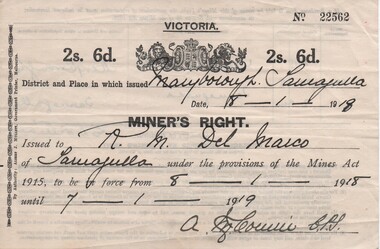 Nº 22562
VICTORIA.
2s. 6d. 2s. 6d.
District and Place in which issued Maryborough. Tarnagulla
Date, 8 — 1 — 1918
MINER'S RIGHT.
Issued to A. M. Del Marco
of Tarnagulla under the provisions of the Mines Act
1915, to be in force from 8 — 1 — 1918
until 7 — 1 — 1919
By Authority: Albert J. Mullett, Government Printer, Melbourne.